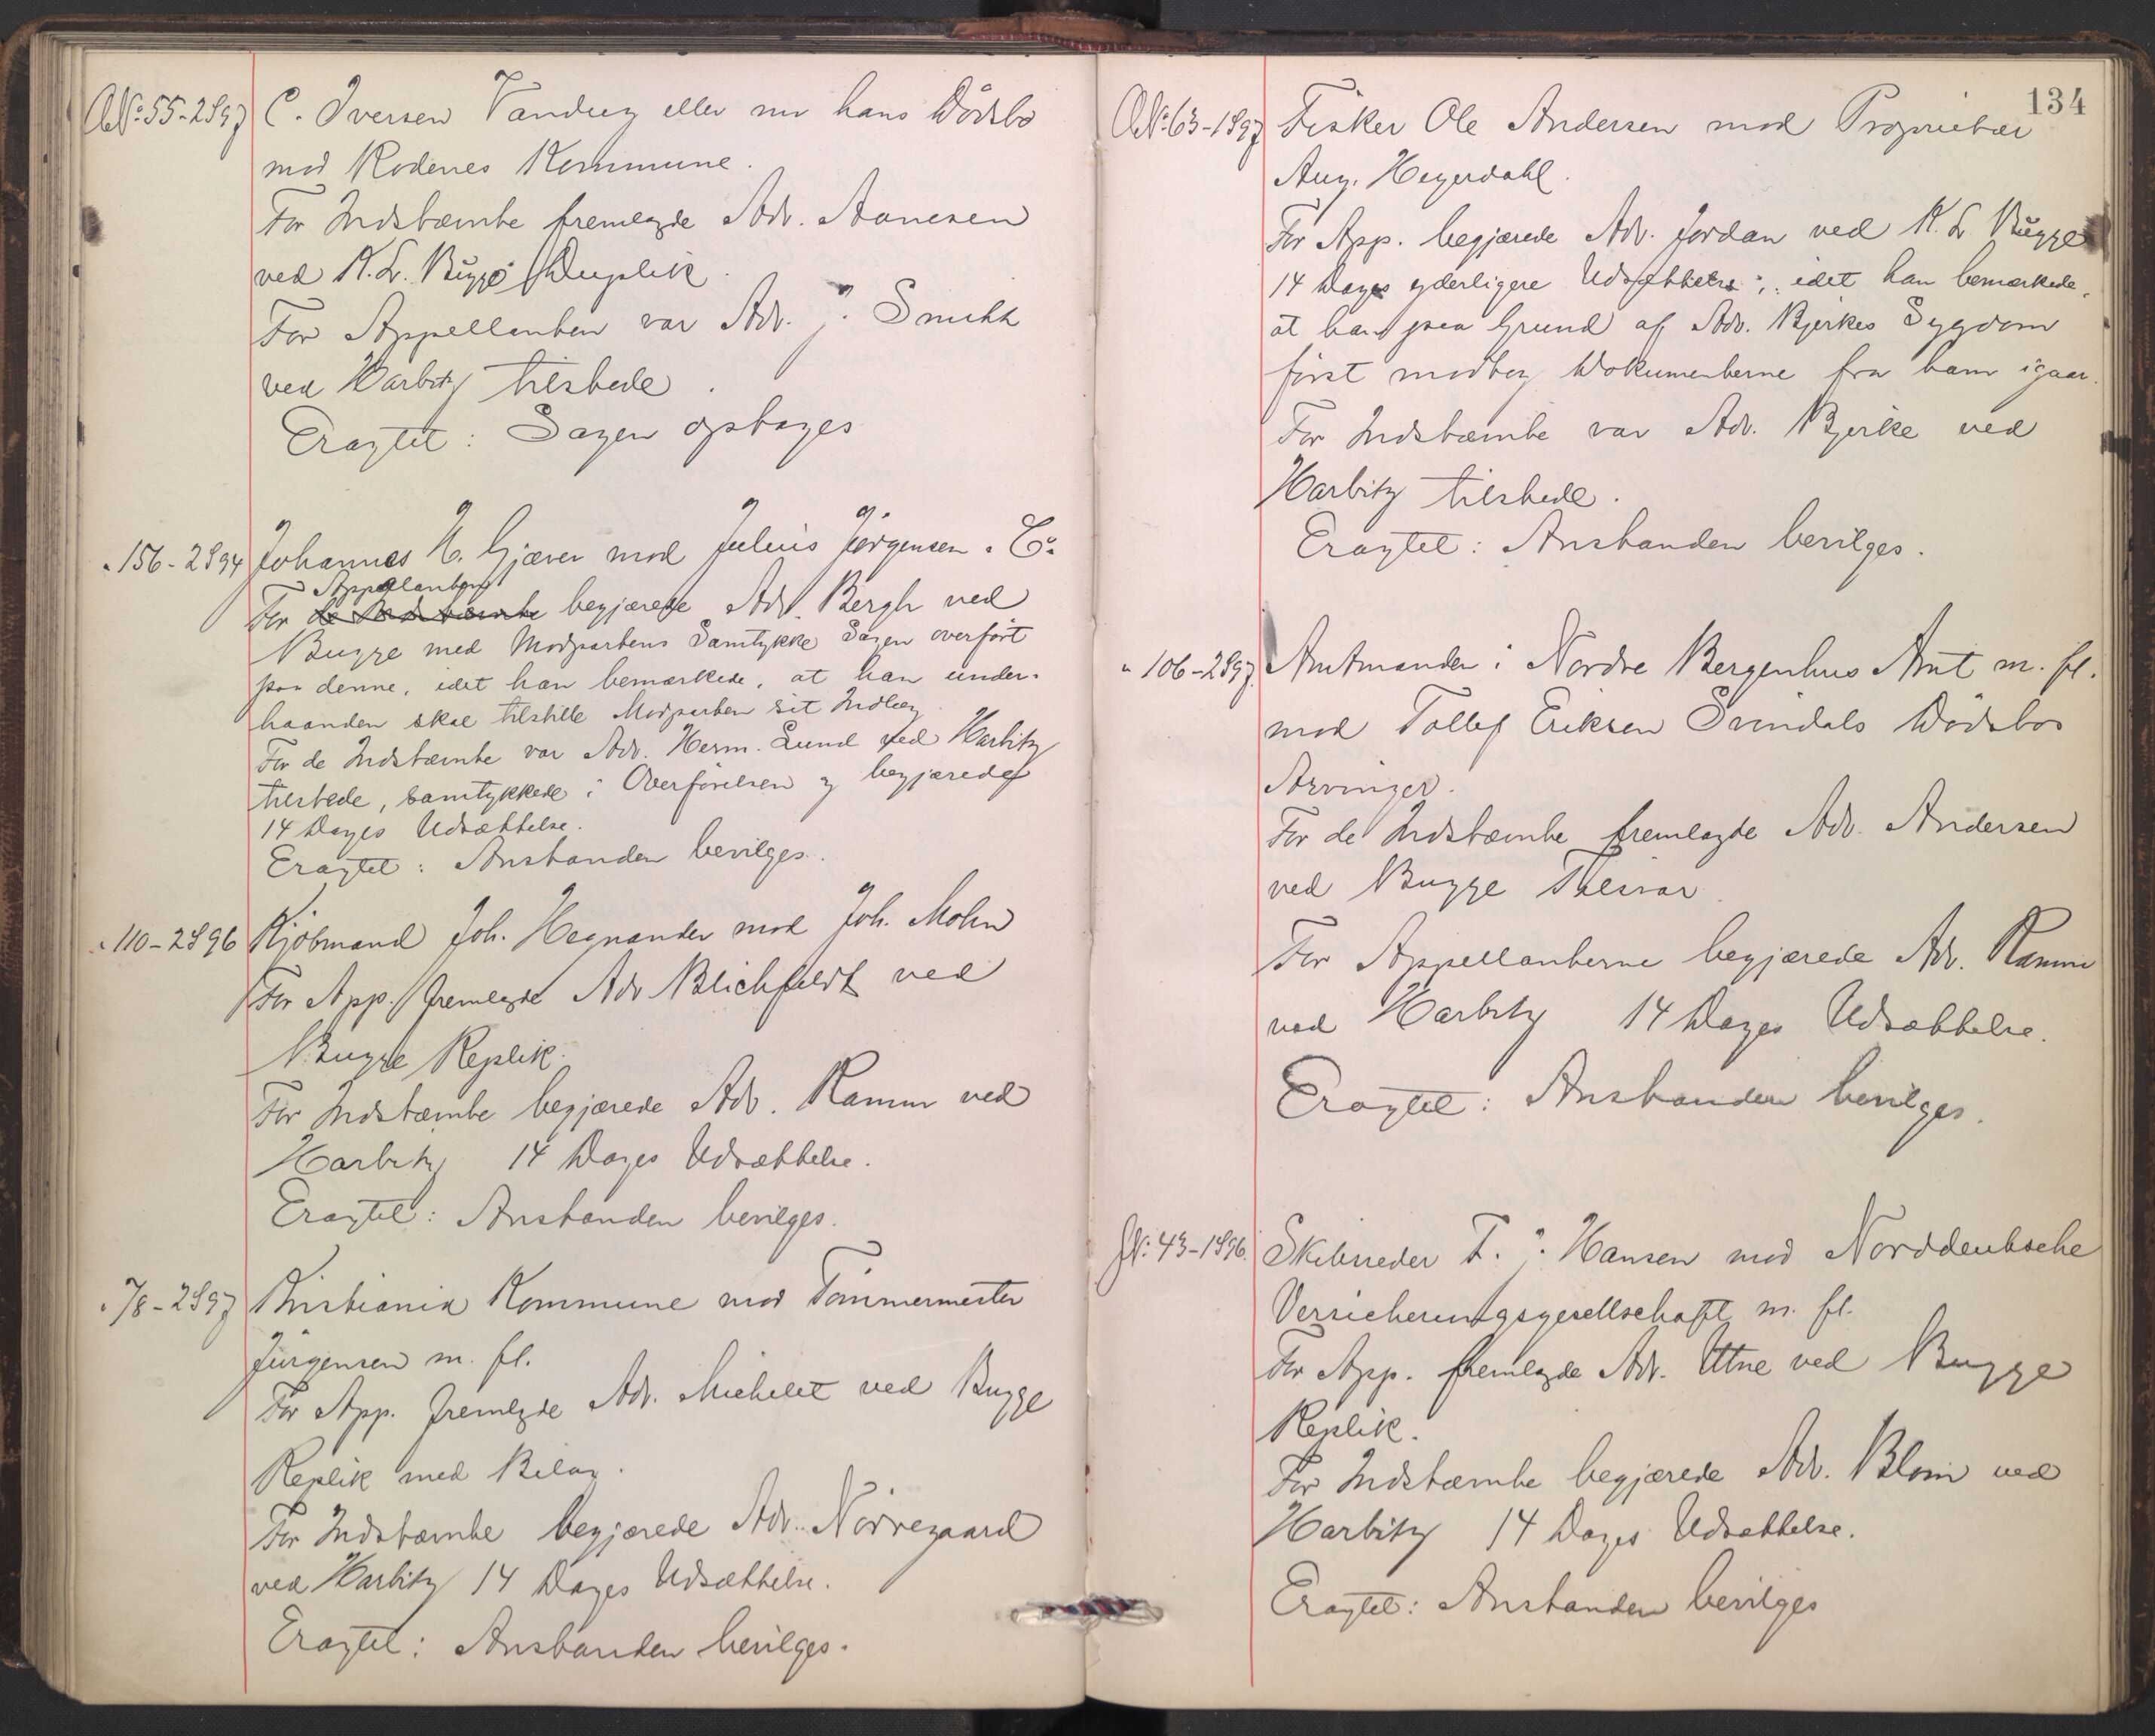 A№ 55-2897 C. Iversen Vandug eller nu hans Dödsbo
mod Rodenes Kommune.
For Indstævnte fremlagde Adv. Aanesen
ved K. L. Bugge Duplik.
For Appellanten var Adv. J. Smith
ved Harbitz tilstede.
Eragtet: Sagen optages
" 156-2894 Johannes H. Gjæver mod Julius Jørgensen & Co.
Appellanten
For de Indstævnte begjærede Adv. Bergh ved
Bugge med Modpartens Samtykke Sagen overført
paa denne, idet han bemærkede, at han under-
haanden skal tilstille Modparten sit Indlæg.
For de Indstævnte var Adv. Herm. Lund ved Harbitz
tilstede, samtykkede i Overførelsen og begjærede
14 Dages Udsættelse.
Eragtet: Anstanden bevilges.
" 110-2896 Kjøbmand Joh. Hegnander mod Joh. Mohn
For App. fremlagde Adv Blichfeldt ved
Bugge Replik.
For Indstævnte begjærede Adv. Ramm ved
Harbitz 14 Dages Udsættelse.
Eragtet: Anstanden bevilges.
" 78-2897 Kristiania Kommune mod Tömmermester
Jürgensen m. fl.
For App. fremlagde Adv. Michelet ved Bugge
Replik med Bilag.
For Indstævnte begjærede Adv. Nörregaard
ved Harbitz 14 Dages Udsættelse.
Eragtet: Anstanden bevilges.
134
A№ 63-1897 Fisker Ole Andersen mod Proprietær
Aug. Heyerdahl.
For App. begjærede Adv. Jordan ved K. L. Bugge
14 Dages yderligere Udsættelse, idet han bemærkede,
at han paa Grund af Adv. Bjerkes Sygdom
först modtog Dokumenterne fra ham igaar.
For Indstævnte var Adv. Bjerke ved
Harbitz tilstede.
Eragtet: Anstanden bevilges.
" 106-2897 Amtmanden i Nordre Bergenhus Amt m. fl.
mod Tollef Eriksen Svindals Dödsbos
Arvinger.
For de Indstævnte fremlagde Adv. Andersen
ved Bugge Tilsvar.
For Appellanterne begjærede Adv. Ramm
ved Harbitz 14 Dages Udsættelse.
Eragtet: Anstanden bevilges.
J№ 43-1896. Skibsreder F. J. Hansen mod Norddeutsche
Versicherungsgesellschaft m. fl.
For App. fremlagde Adv. Utne ved Bugge
Replik.
For Indstævnte begjærede Adv. Blom ved
Harbitz 14 Dages Udsættelse.
Eragtet: Anstanden bevilges